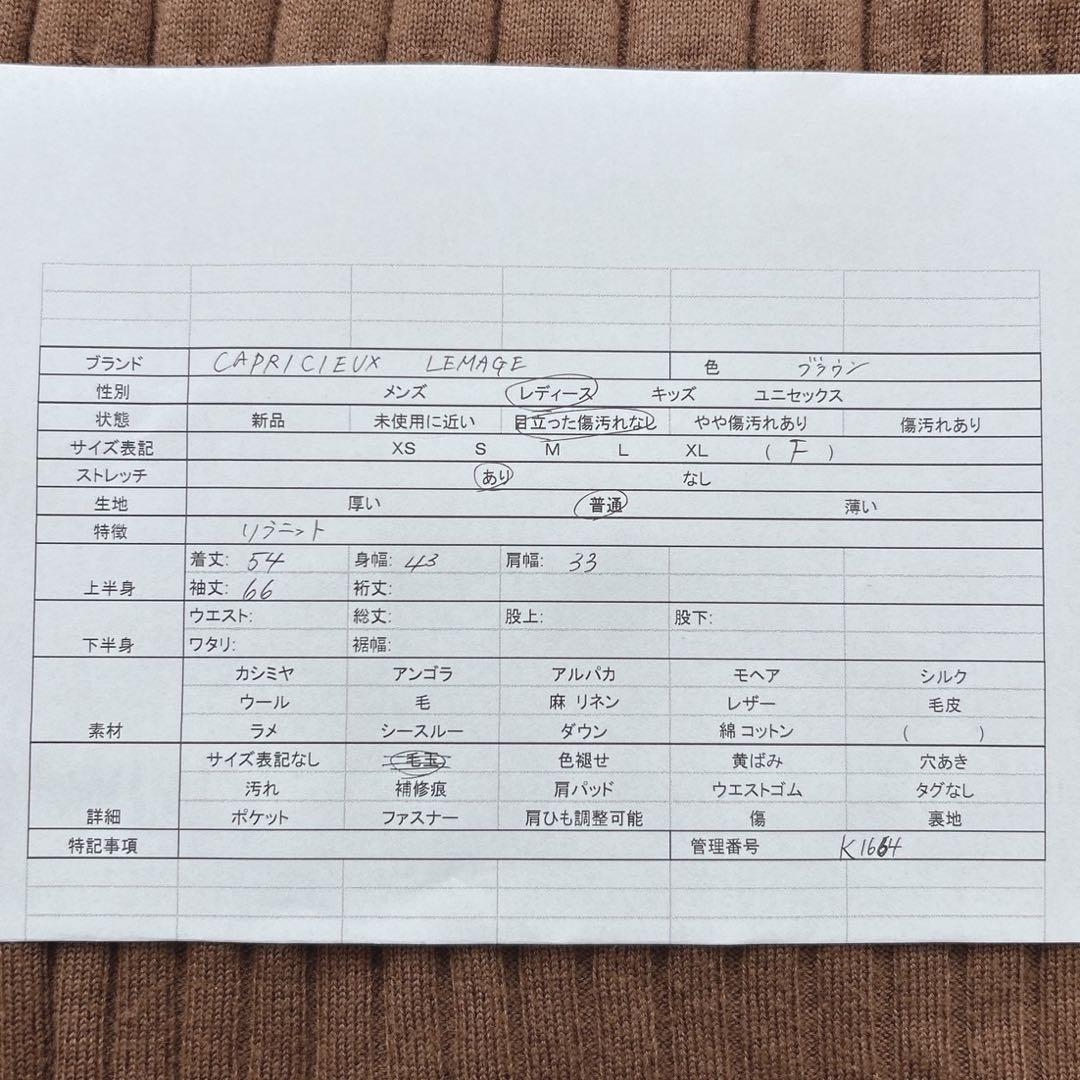 ブランド CAPRICIEUX LEMAGE 色 ブラウン
性別 メンズ レディース キッズ ユニセックス
状態 新品 未使用に近い 目立った傷汚れなし やや傷汚れあり 傷汚れあり
サイズ表記 XS S M L XL ( F )
ストレッチ あり なし
生地 厚い 普通 薄い
特徴 リブニット
上半身 着丈: 54 身幅: 43 肩幅: 33
袖丈: 66 裄丈:
下半身 ウエスト: 総丈: 股上: 股下:
ワタリ: 裾幅:
カシミヤ アンゴラ アルパカ モヘア シルク
ウール 毛 麻 リネン レザー 毛皮
素材 ラメ シースルー ダウン 綿 コットン ( )
サイズ表記なし 毛玉 色褪せ 黄ばみ 穴あき
汚れ 補修痕 肩パッド ウエストゴム タグなし
詳細 ポケット ファスナー 肩ひも調整可能 傷 裏地
特記事項 管理番号 K1664